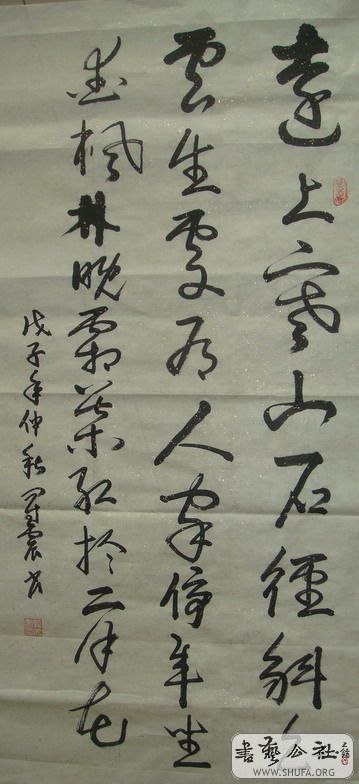 遠上寒山石徑斜白
雲生處有人家停車坐
愛楓林晚霜葉紅於二月花
戊子年仲秋 震書
書藝公社
WWW.SHUFA.ORG